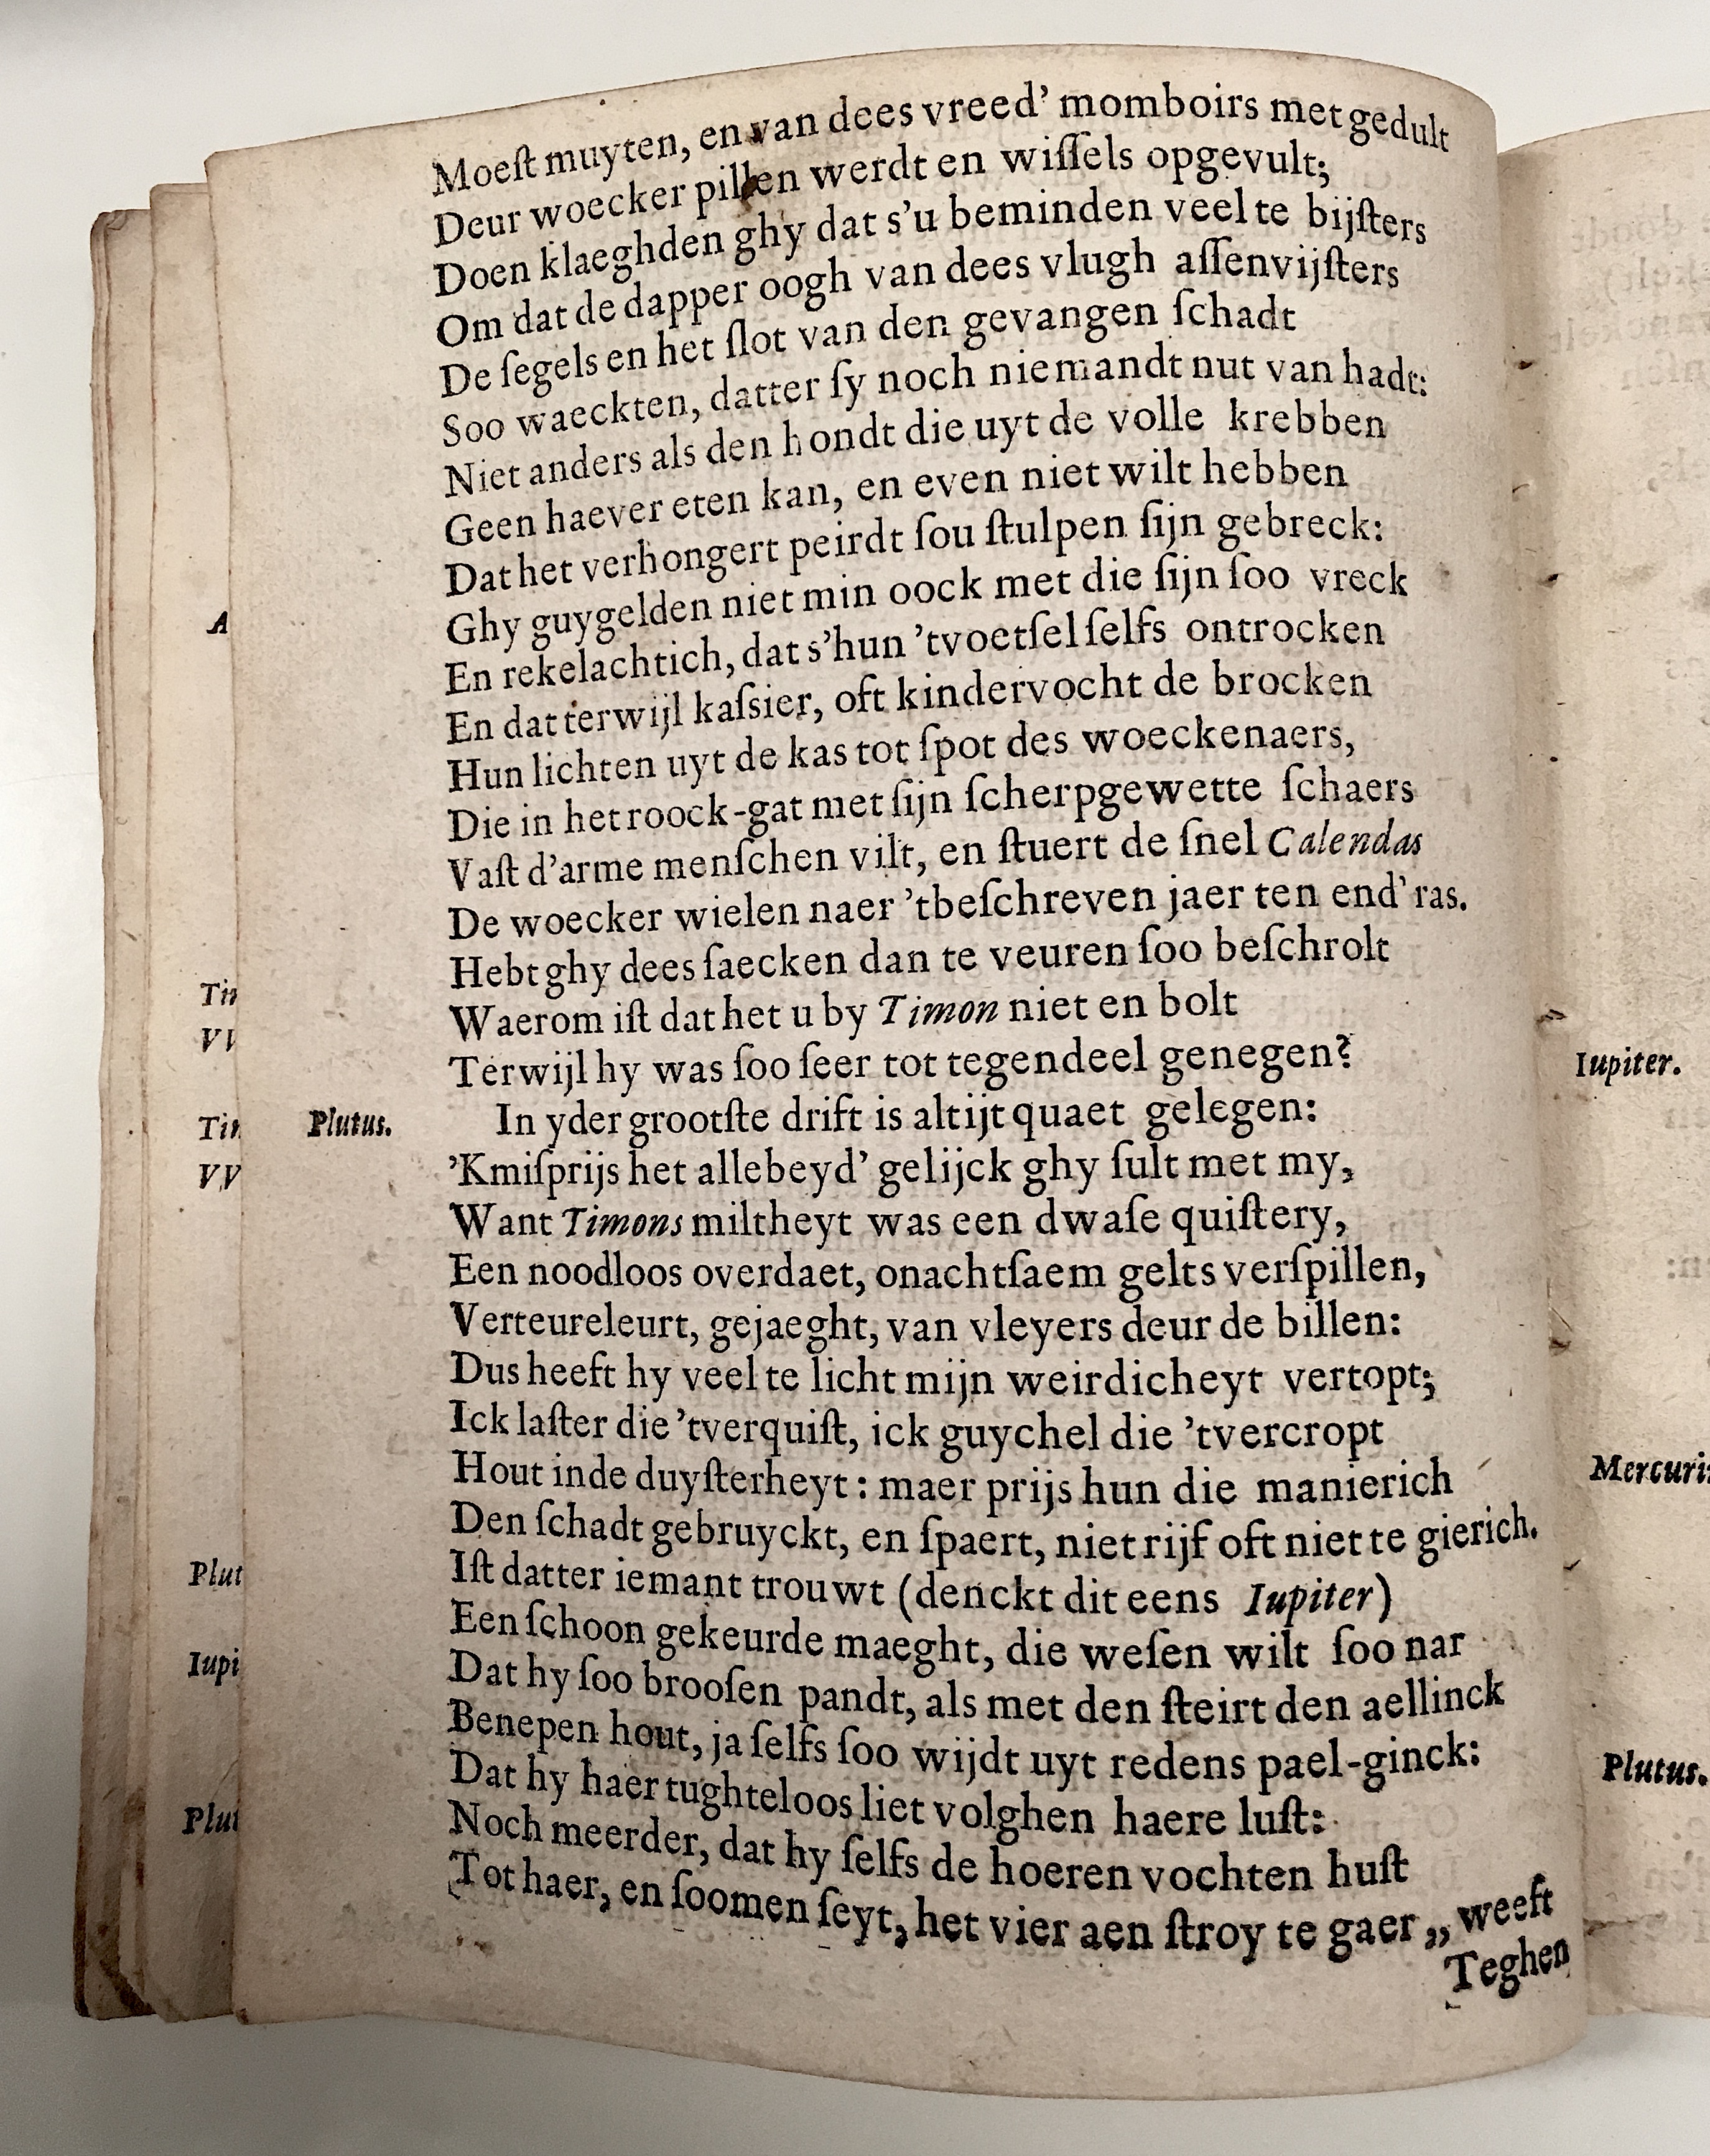 Moeſt muyten, en van dees vreed' momboirs met gedult
Deur woecker pillen werdt en wiſſels opgevult;
Doen klaeghden ghy dat s'u beminden veel te bijſters
Om dat de dapper oogh van dees vlugh aſſenvijſters
De ſegels en het ſlot van den gevangen ſchadt
Soo waeckten, datter ſy noch niemandt nut van hadt:
Niet anders als den hondt die uyt de volle krebben
Geen haever eten kan, en even niet wilt hebben
Dat het verhongert peirdt ſou ſtulpen ſijn gebreck:
Ghy guygelden niet min oock met die ſijn ſoo vreck
En rekelachtich, dat s'hun 'tvoetſel ſelfs ontrocken
En dat terwijl kaſsier, oft kindervocht de brocken
Hun lichten uyt de kas tot ſpot des woeckenaers,
Die in het roock-gat met ſijn ſcherpgewette ſchaers
Vaſt d'arme menſchen vilt, en ſtuert de ſnel Calendas
De woecker wielen naer 'tbeſchreven jaer ten end' ras.
Hebt ghy dees ſaecken dan te veuren ſoo beſchrolt
Waerom iſt dat het u by Timon niet en bolt
Terwijl hy was ſoo ſeer tot tegendeel genegen?
Plutus. In yder grootſte drift is altijt quaet gelegen:
'Kmiſprijs het allebeyd' gelijck ghy ſult met my,
Want Timons miltheyt was een dwaſe quiſtery,
Een noodloos overdaet, onachtſaem gelts verſpillen,
Verteureleurt, gejaeght, van vleyers deur de billen:
Dus heeft hy veel te licht mijn weirdicheyt vertopt;
Ick laſter die 'tverquiſt, ick guychel die 'tvercropt
Hout inde duyſterheyt: maer prijs hun die manierich
Den ſchadt gebruyckt, en ſpaert, niet rijf oft niet te gierich.
Iſt datter iemant trouwt (denckt dit eens Iupiter)
Een ſchoon gekeurde maeght, die weſen wilt ſoo nar
Dat hy ſoo brooſen pandt, als met den ſteirt den aellinck
Benepen hout, ja ſelfs ſoo wijdt uyt redens pael-ginck:
Dat hy haer tughteloos liet volghen haere luſt:
Noch meerder, dat hy ſelfs de hoeren vochten huſt
Tot haer, en ſoomen ſeyt, het vier aen ſtroy te gaer „ weeft
Teghen
A
Tin
VV
Plut
Iupi
Plut
Iupiter.
Mercuri
Plutus.